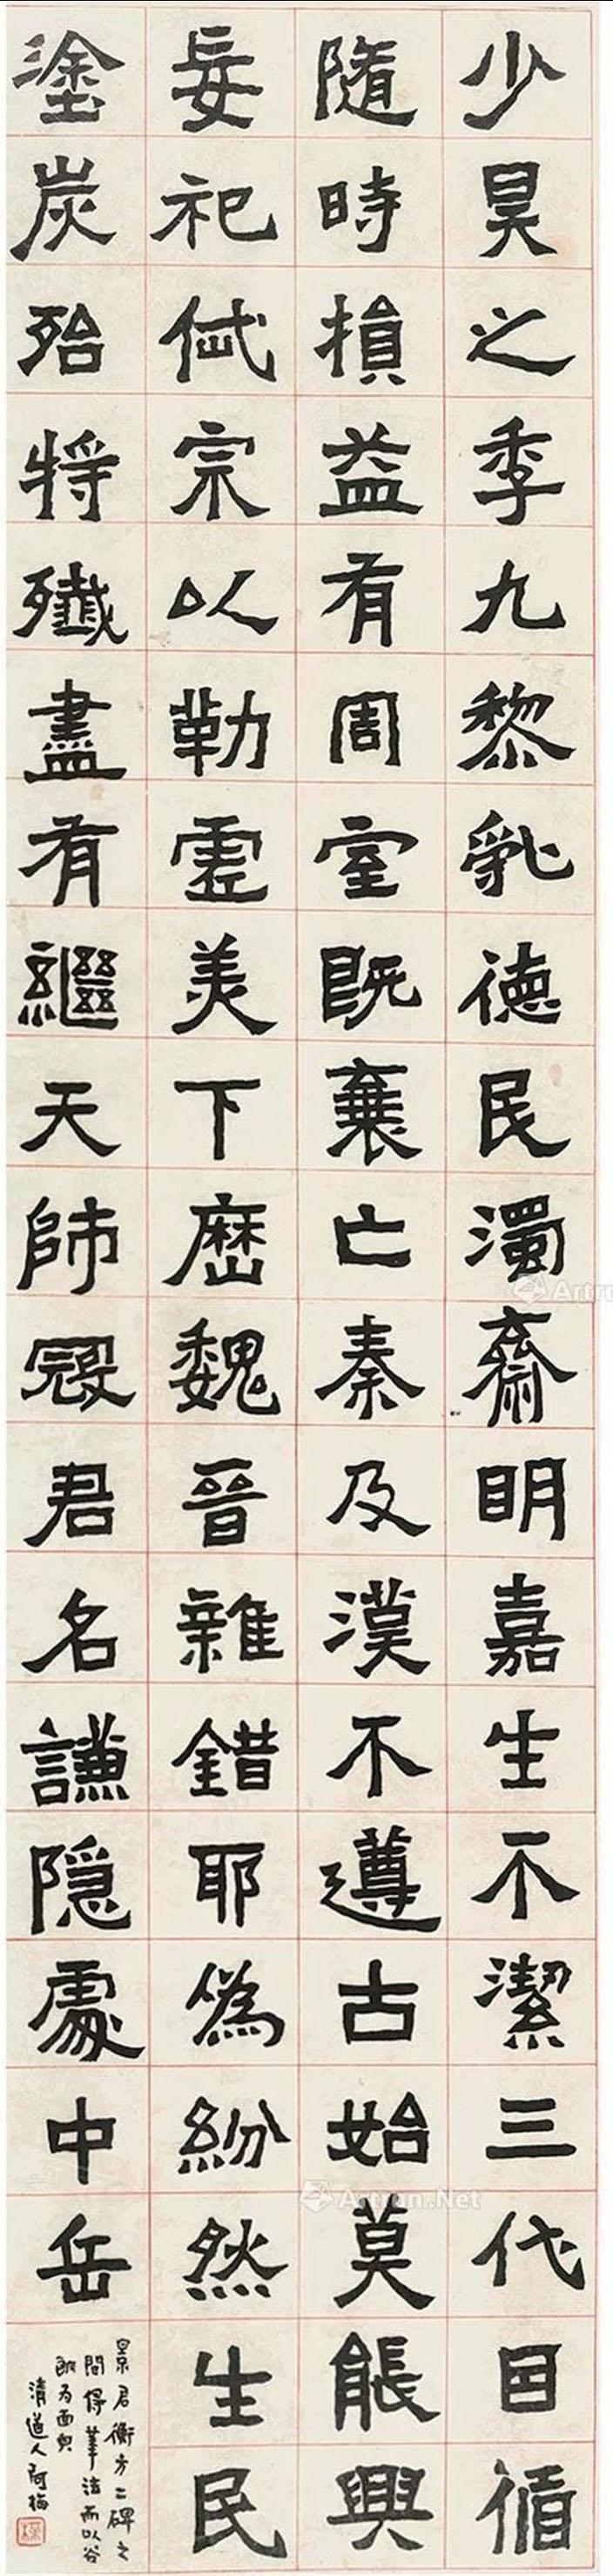 少昊之季九黎亂德民瀆齋明嘉生不潔三代因循
隨時損益有周室既棄亡秦及漢不遵古始莫能興
妄祀岱宗以勒虛美下歷魏晉雜錯耶偽紛然生民
塗炭殆將殲盡有繼天師寇君名謙隱處中岳
景君衡方二碑之
間得筆法而以谷
朗為面貌
清道人阿梅
Artron.Net